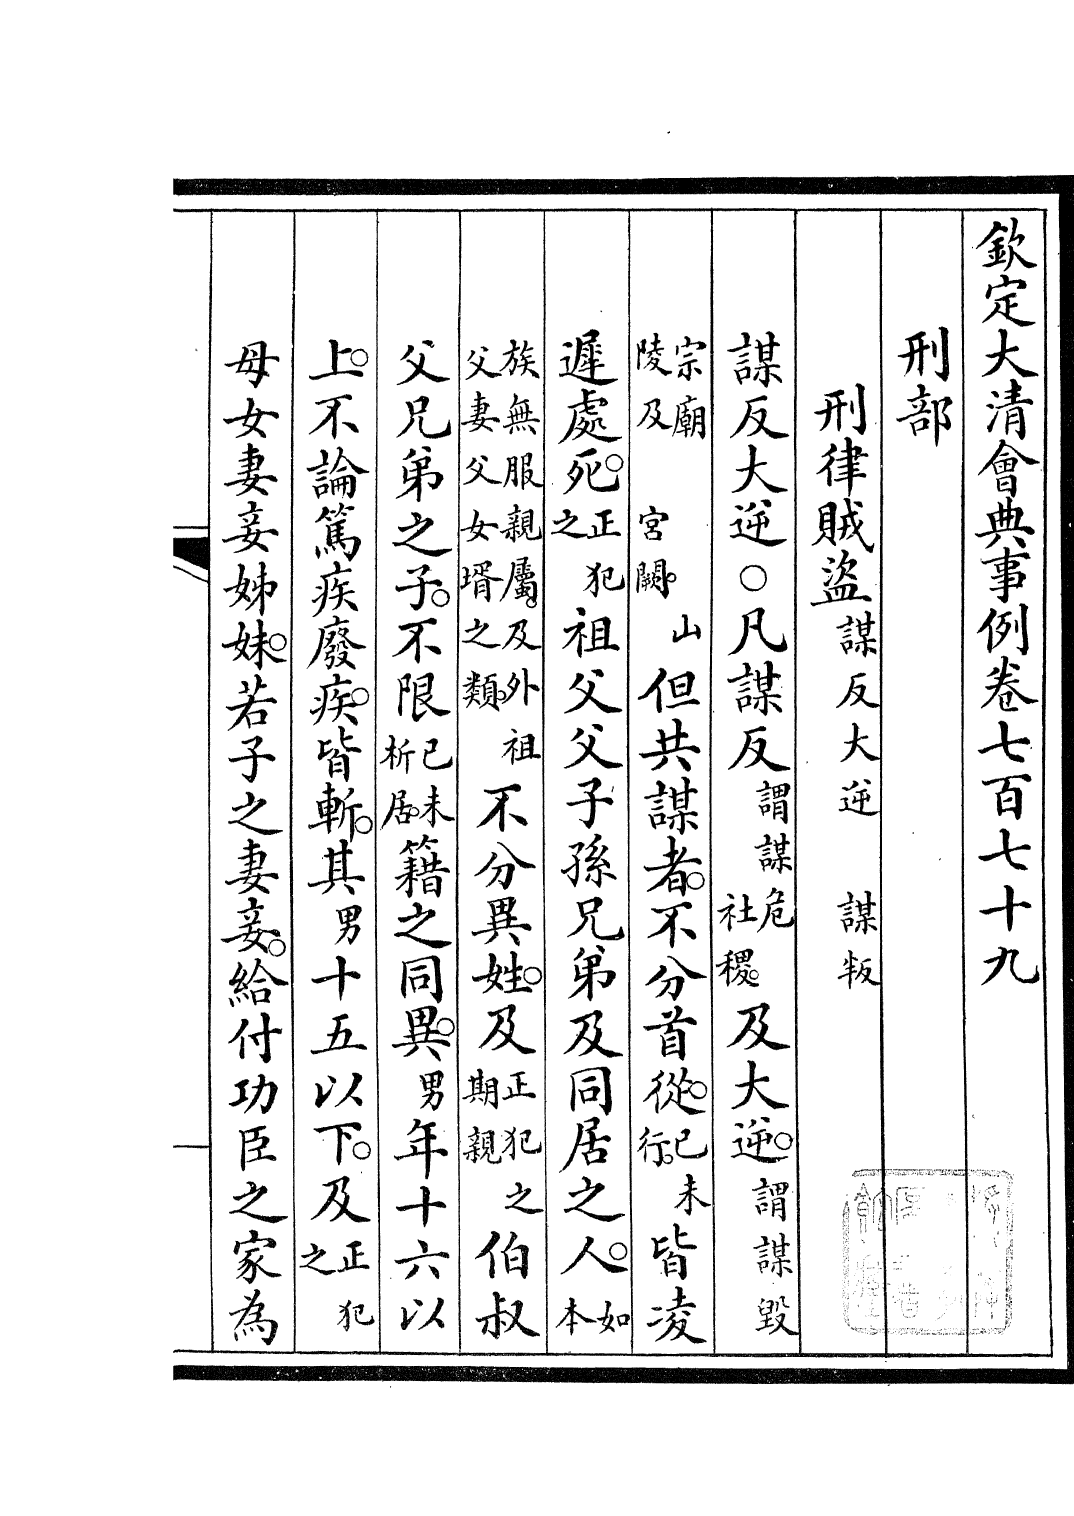 欽定大清會典事例卷七百七十九
刑部
刑律賊盜 謀反大逆 謀叛
謀反大逆○凡謀反謂謀危社稷。及大逆。謂謀毀
宗廟山陵及宮闕。但共謀者。不分首從。已未行。皆凌
遲處死。正犯之祖父父子孫兄弟及同居之人。如本
族無服親屬。及外祖父妻父女壻之類。不分異姓。及正犯之期親伯叔
父兄弟之子。不限已未析居。籍之同異。男年十六以
上。不論篤疾廢疾。皆斬。其男十五以下。及正犯之
母女妻妾姊妹。若子之妻妾。給付功臣之家為